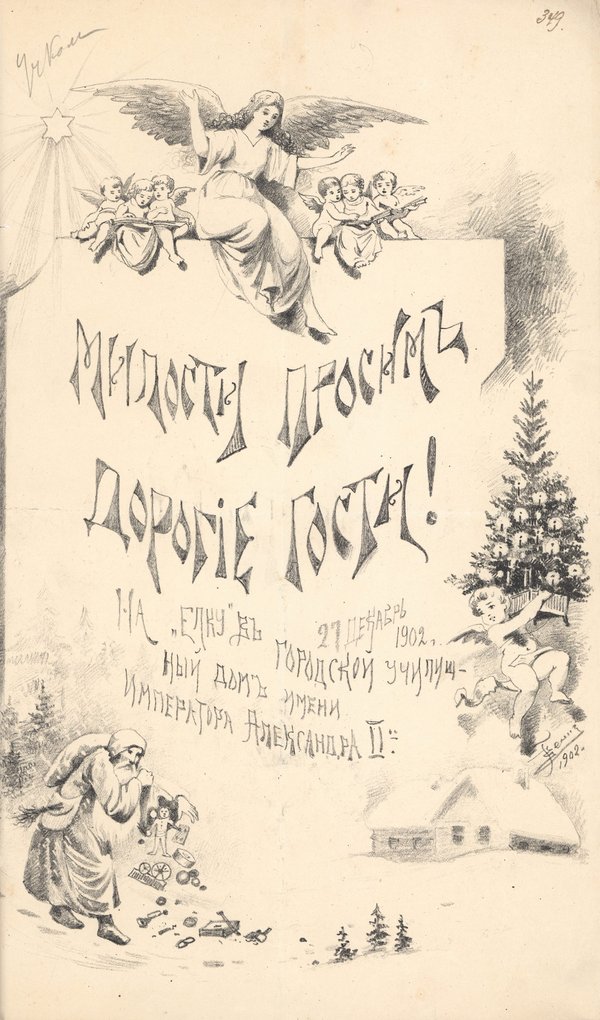 349.
МИЛОСТИ ПРОСИМЪ
ДОРОГІЕ ГОСТИ!
НА „ЕЛКУ" ВЪ 27 ДЕКАБРЬ 1902 г.
ГОРОДСКОЙ УЧИЛИЩ-
НЫЙ ДОМЪ ИМЕНИ
ИМПЕРАТОРА АЛЕКСАНДРА II го
1902 г.